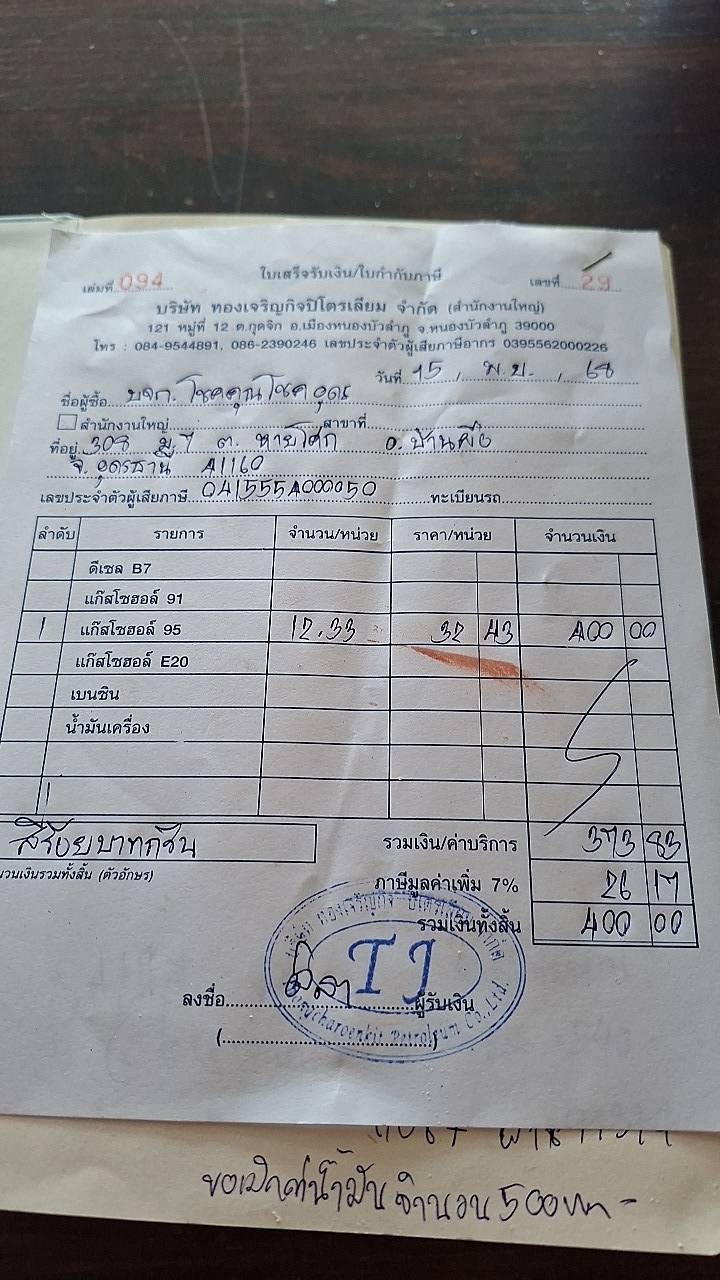 เล่มที่ 094 ใบเสร็จรับเงิน/ใบกำกับภาษี เลขที่ 29
บริษัท ทองเจริญกิจปิโตรเลียม จำกัด (สำนักงานใหญ่)
121 หมู่ที่ 12 ต.กุดจิก อ.เมืองหนองบัวลำภู จ.หนองบัวลำภู 39000
โทร : 084-9544891, 086-2390246 เลขประจำตัวผู้เสียภาษีอากร 0395562000226
วันที่ 15 / พ.ย. / 68
ชื่อผู้ซื้อ บจก. โชคคุณโชคอุดร
สำนักงานใหญ่ สาขาที่
ที่อยู่ 308 ม.7 ต. หายโศก อ. บ้านผือ
จ. อุดรธานี 41160
เลขประจำตัวผู้เสียภาษี 0415554000050 ทะเบียนรถ
ลำดับ รายการ จำนวน/หน่วย ราคา/หน่วย จำนวนเงิน
ดีเซล B7
แก๊สโซฮอล์ 91
1 แก๊สโซฮอล์ 95 12.33 32 43 400 00
แก๊สโซฮอล์ E20
เบนซิน
น้ำมันเครื่อง
สี่ร้อยบาทถ้วน รวมเงิน/ค่าบริการ 373 83
จำนวนเงินรวมทั้งสิ้น (ตัวอักษร) ภาษีมูลค่าเพิ่ม 7% 26 17
รวมเงินทั้งสิ้น 400 00
TJ
ลงชื่อ ผู้รับเงิน
Petroleum Co.,Ltd.
ขอเบิกค่าน้ำมัน จำนวน 500 บาท -